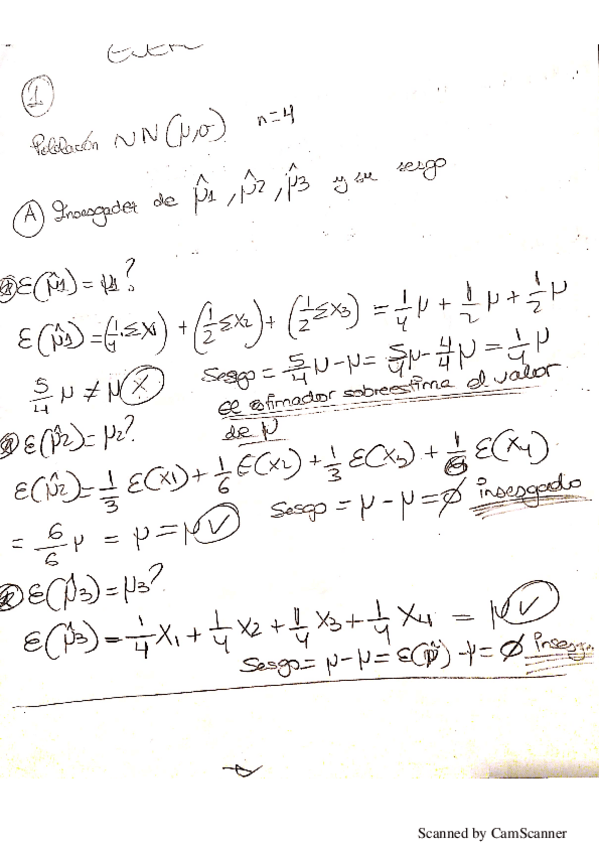 1
Población N N(μ,σ) n=4
A Insesgadez de μ̂1, μ̂2, μ̂3 y su sesgo
ε(μ̂1) = μ1?
ε(μ̂1) = (1/4·ΣX1) + (1/2 ΣX2) + (1/2 ΣX3) = 1/4 μ + 1/2 μ + 1/2 μ
5/4 μ ≠ μ X Sesgo = 5/4 μ - μ = 5/4 μ - 4/4 μ = 1/4 μ
el estimador sobreestima el valor
de μ
ε(μ̂2) = μ2?
ε(μ̂2) = 1/3 ε(X1) + 1/6 ε(X2) + 1/3 ε(X3) + 1/6 ε(X4)
= 6/6 μ = μ = μ V Sesgo = μ - μ = ∅ insesgado
ε(μ̂3) = μ3?
ε(μ̂3) = 1/4 X1 + 1/4 X2 + 1/4 X3 + 1/4 X4 = μ V
Sesgo = μ - μ = ε(μ̂) - μ = ∅ Insesg
Scanned by CamScanner